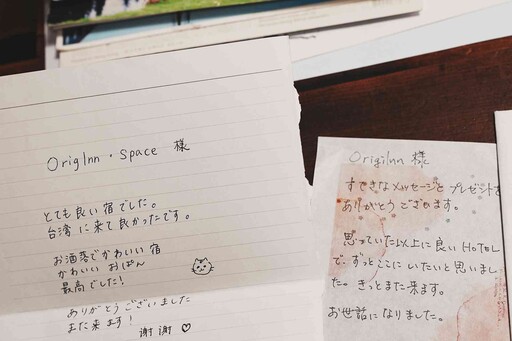 OrigInn・Space 様
とても良い宿でした。
台湾に来て良かったです。
お洒落でかわいい宿
かわいい おぼん
最高でした!
ありがとうございました
また来ます!
謝謝 ♡
OrigiInn 様
すてきなメッセージと プレゼントを
ありがとう ございます。
思っていた以上に良い HOTEL
で、ずっとここに いたいと思いまし
た。きっとまた来ます。
お世話になりました。